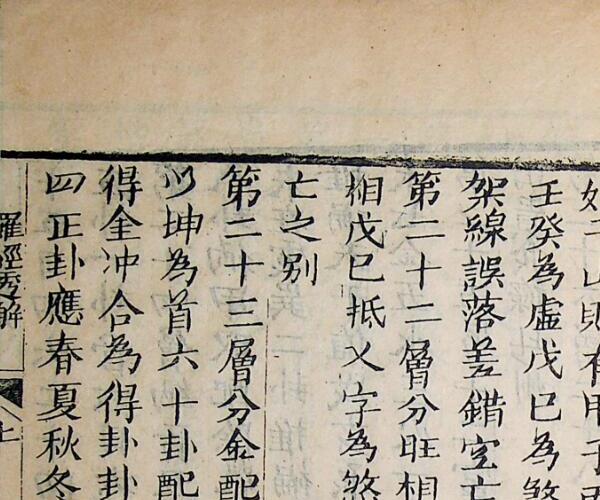 如二山則有甲子丙
壬癸為虛戊巳為煞
架線誤落差錯空亡
第二十二層分旺相
相戊巳抵乂字為煞
亡之别
第二十三層分金配
以坤為首六十卦配
得金冲合為得卦卦
四正卦應春夏秋冬
羅經透解